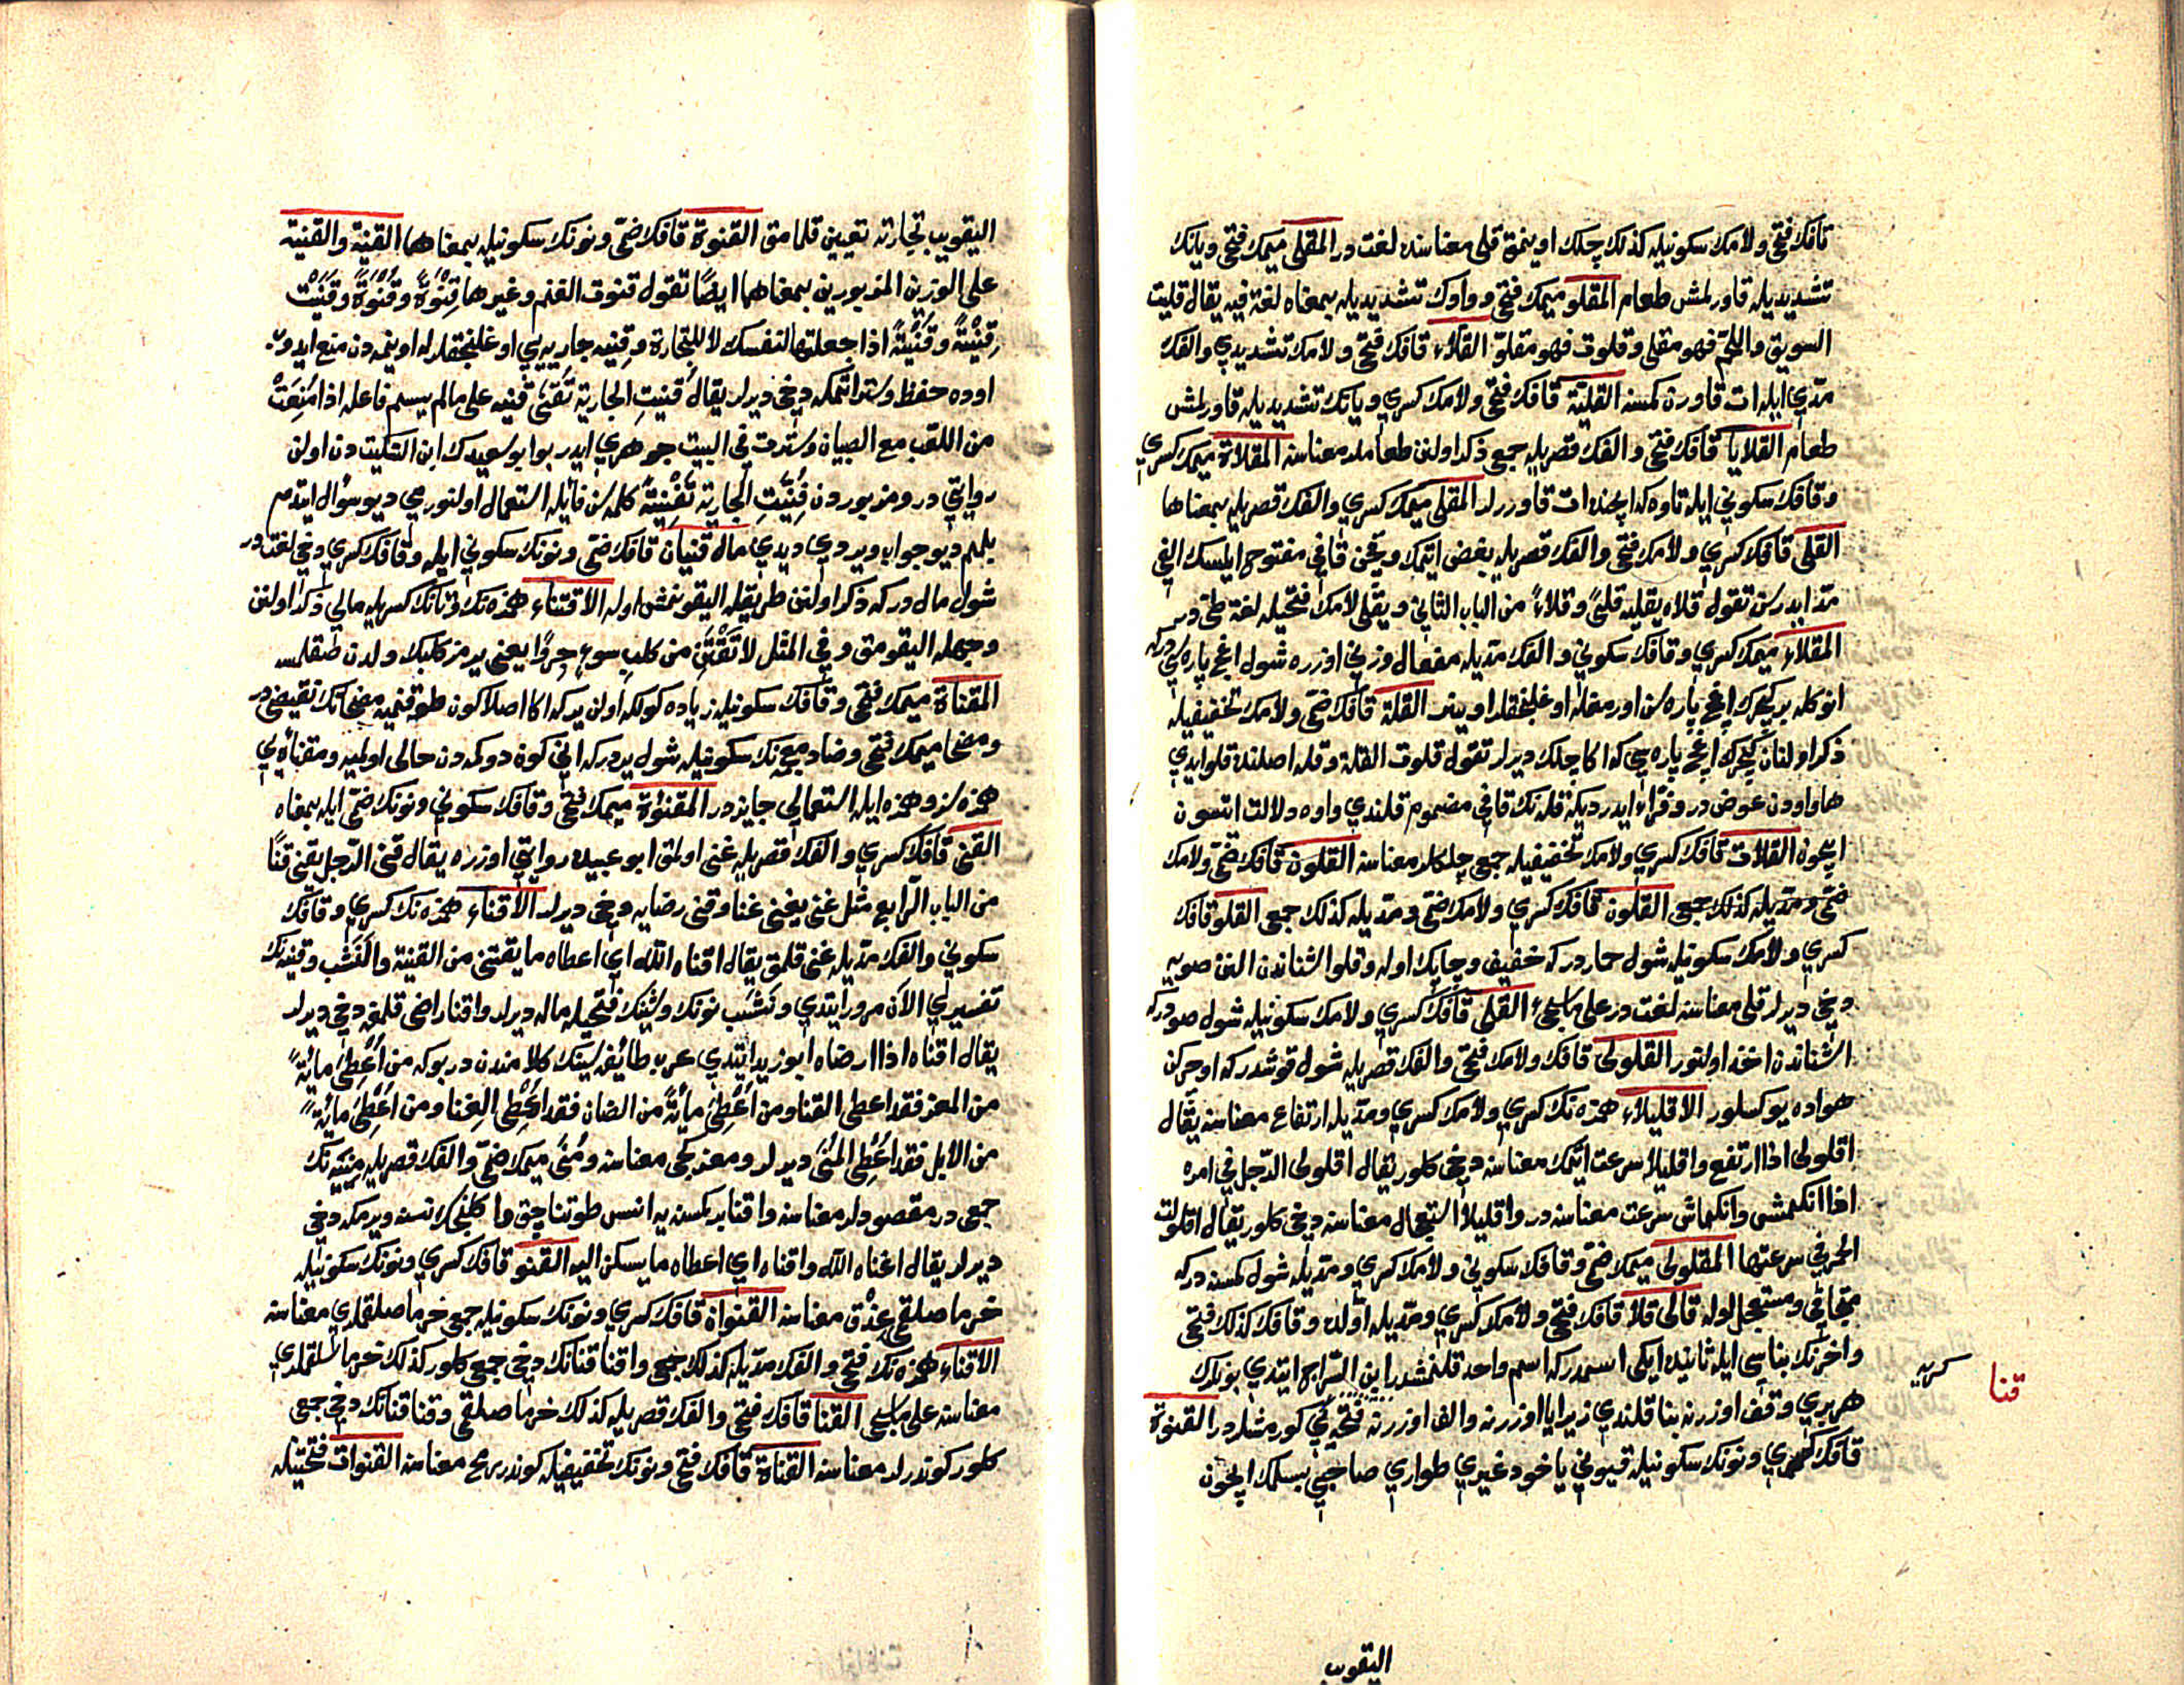 قافك فتحى ولامك سكونيله كذلك چلك اوينمق قلى معناسنه لغت در المقلى ميمك فتحى ويانك
تشديديله قاورلمش طعام المقلو ميمك فتحى وواوك تشديديله بمعناه لغة فيه يقال قليت
السويق واللحم فهو مقلى وقلوت فهو مقلو القلاء قافك فتحى ولامك تشديدي والفك
مدي ايله ات قاورن كمسنه القلية قافك فتحى ولامك كسري ويانك تشديديله قاورلمش
طعام القلايا قافك فتحى والفك قصريله جمعى ذكر اولنن طعاملر معناسنه المقلاة ميمك كسري
وقافك سكوني ايله تاوه كه ايچنده ات قاوررلر المقلى ميمك كسري والفك قصريله بمعناها
القلى قافك كسري ولامك فتحى والفك قصريله بغض ايتمك وچقن قافي مفتوح ايلسك الفي
مد ايدرسن تقول قلاه يقليه قلى وقلاء من الباب الثاني ويقلى لامك فتحيله لغة طى در
المقلاء ميمك كسري وقافك سكوني والفك مديله مفعال وزني اوزره شول اغج پاره سي دركه
انوكله بر كچرك اغج پاره سن اورمغله اوغلنجقلر اوينر القلة قافك ضمى ولامك تخفيفيله
ذكر اولنان كچرك اغج پاره سي كه اكا چلك ديرلر تقول قلوت القلة وقله اصلنده قلو ايدي
ها واودن عوض در وفراء ايدر ديكه قله نك قافي مضموم قلندي واوه دلالت اتسون
ايچون القلات قافك كسري ولامك تخفيفيله جمعى چلكلر معناسنه القلون قافك ضمى ولامك
ضمى ومديله كذلك جمعى القلون قافك كسري ولامك ضمى ومديله كذلك جمعى القلو قافك
كسري ولامك سكونيله شول حمار دركه خفيف وچابك اوله وقلو اشناندن النن صويه
دخى ديرلر قلى معناسنه لغت در على ماسيجئ القلى قافك كسري ولامك سكونيله شول صو دركه
اشناندن اخذ اولنور القلولى قافك ولامك فتحى والفك قصريله شول قوشدركه اوچركن
هواده يوكسلور الاقليلاء همزه نك كسري ولامك كسري ومديله ارتفاع معناسنه يقال
اقلولى اذا ارتفع واقليلا سرعت ايتمك معناسنه دخى كلور يقال اقلولى الرجل في امره
اذا انكمش وانكماش سرعت معناسنه در واقليلا استعجال معناسنه دخى كلور يقال اقلولت
الحمر في سرعتها المقلولى ميمك ضمى وقافك سكوني ولامك كسري ومديله شول كمسنه دركه
متجافي ومستعجل اوله قالى قلا قافك فتحى ولامك كسري ومديله اولده وقافك كذلك فتحى
واخرنك بناسي ايله ثانيده ايكى اسمدركه اسم واحد قلنمشدر ابن السراج ايتدي بونلرك
هربري وقف اوزرنه بنا قلندي زيرا يا اوزرنه والف اوزرنه فتحه كي كورمشلر در القنوة
قافك كسري ونونك سكونيله قيوني ياخود غيري طواري صاحبي بسلمك ايچون
كربه
قنا
اليقويب
اليقويب تجارته تعيين قلمامق القنوة قافك ضمى ونونك سكونيله بمعناهما القنية والقنية
على الوزنين المذبورين بمعناهما ايضا تقول قنوت الغنم وغيرها قنوة وقنوة وقنيت
قنية وقنية اذا جعلتها لنفسك لا للتجارة وقنيه جاريه يي اوغلنجقلرله اوينمه دن منع ايدوب
اوده حفظ وستر اتمكه دخى ديرلر يقال قنيت الجارية تقنى قنيه على مالم يسم فاعله اذا منعت
من اللعب مع الصبيان وسترت في البيت جوهري ايدر بو ابو سعيدك ابن السكيت دن اولن
روايتي در ومزبوردن قنيت الجارية تقنية كلمه سن قائله استعمال اولنور مي ديو سؤال ايتدم
بلمم ديو جواب ويردي ديدي مال قنيان قافك ضمى ونونك سكوني ايله وقافك كسري دخى لغت در
شول مال دركه ذكر اولنن طريقله اليقونمش اوله الاقتناء همزه نك وتانك كسريله مالي ذكر اولنن
وجهله اليقومق وفي المثل لا تقتن من كلب سوء جروا يعنى يرمز كلبك ولدن صقلمه
المقناة ميمك فتحى وقافك سكونيله زياده كولكه اولن يركه اكا اصلا كون طوقنميه مضحانك نقيضى در
ومضحا ميمك فتحى وضاد معجمه نك سكونيله شول يردركه اني كون دوكمه دن حالى اولميه ومقناه يي
همزه سز وهمزه ايله استعمالي جايز در المقنوة ميمك فتحى وقافك سكوني ونونك ضمى ايله بمعناه
القنى قافك كسري والفك قصريله غنى اولمق ابو عبيده روايتي اوزره يقال قنى الرجل يقنى قنا
من الباب الرابع مثل غنى يغنى غنا وقنى رضايه دخى ديرلر الاقناء همزه نك كسري وقافك
سكوني والفك مديله غنى قلمق يقال اقناه الله اي اعطاه ما يقتنى من القنية والنشب وقنيه نك
تفسيري الان مرور ايتدي ونشب نونك وشينك فتحيله ماله ديرلر واقنا راضى قلمغه دخى ديرلر
يقال اقناه اذا ارضاه ابو زيد ايتدي عرب طائفه سينك كلامندن در بوكه من اعطى مائة
من المعز فقد اعطى القنا ومن اعطى مائة من الضان فقد اعطى الغنا ومن اعطى مائة
من الابل فقد اعطى المنى ديرلر ومعز كجى معناسنه ومنى ميمك ضمى والفك قصريله منيه نك
جمعى در مقصودلر معناسنه واقنا بر كمسنه يه انس طوتاچق واكلنجك نسنه ويرمكه دخى
ديرلر يقال اغناه الله واقناه اي اعطاه ما يسكن اليه القنو قافك كسري ونونك سكونيله
خرما صلقمى عذق معناسنه القنوان قافك كسري ونونك سكونيله جمعى خرما صلقملري معناسنه
الاقناء همزه نك فتحى والفك مديله كذلك جمعى واقنا قنانك دخى جمعى كلور كذلك خرما سلقملري
معناسنه على ماسيجى القنا قافك فتحى والفك قصريله كذلك خرما صلقمى وقنا قناتك دخى جمعى
كلور كوندرلر معناسنه القناة قافك فتحى ونونك تخفيفيله كوندر رمح معناسنه القنوات فتحتيله